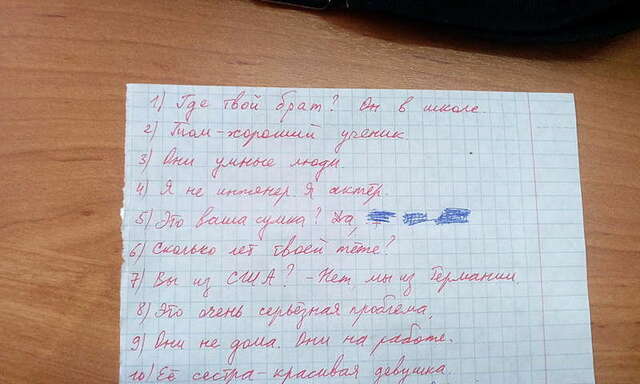 1) Где твой брат? Он в школе.
2) Том-хороший ученик.
3) Они умные люди.
4) Я не инженер. Я актёр.
5) Это ваша сумка? Да,
6) Сколько лет твоей тёте?
7) Вы из США? - Нет, мы из Германии
8) Это очень серьёзная проблема.
9) Они не дома. Они на работе.
10) Её сестра-красивая девушка.